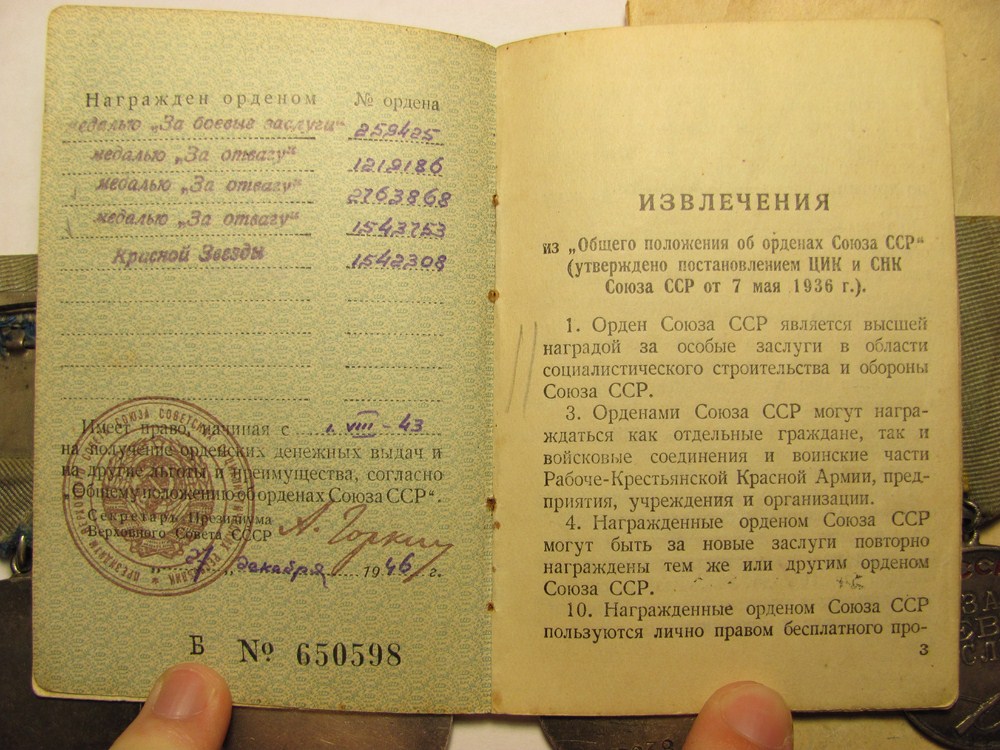 Награжден орденом № ордена
медалью „За боевые заслуги“ 259425
медалью „За отвагу“ 1219186
медалью „За отвагу“ 2763868
медалью „За отвагу“ 1543753
Красной Звезды 1542308
Имеет право, начиная с 1. VIII - 43
на получение орденских денежных выдач и
на другие льготы и преимущества, согласно
„Общему положению об орденах Союза ССР“.
Секретарь Президиума
Верховного Совета СССР А. Горкин
„27“ декабря 1946 г.
Б № 650598
ИЗВЛЕЧЕНИЯ
из „Общего положения об орденах Союза ССР“
(утверждено постановлением ЦИК и СНК
Союза ССР от 7 мая 1936 г.).
1. Орден Союза ССР является высшей
наградой за особые заслуги в области
социалистического строительства и обороны
Союза ССР.
3. Орденами Союза ССР могут награ-
ждаться как отдельные граждане, так и
войсковые соединения и воинские части
Рабоче-Крестьянской Красной Армии, пред-
приятия, учреждения и организации.
4. Награжденные орденом Союза ССР
могут быть за новые заслуги повторно
награждены тем же или другим орденом
Союза ССР.
10. Награжденные орденом Союза ССР
пользуются лично правом бесплатного про-
3